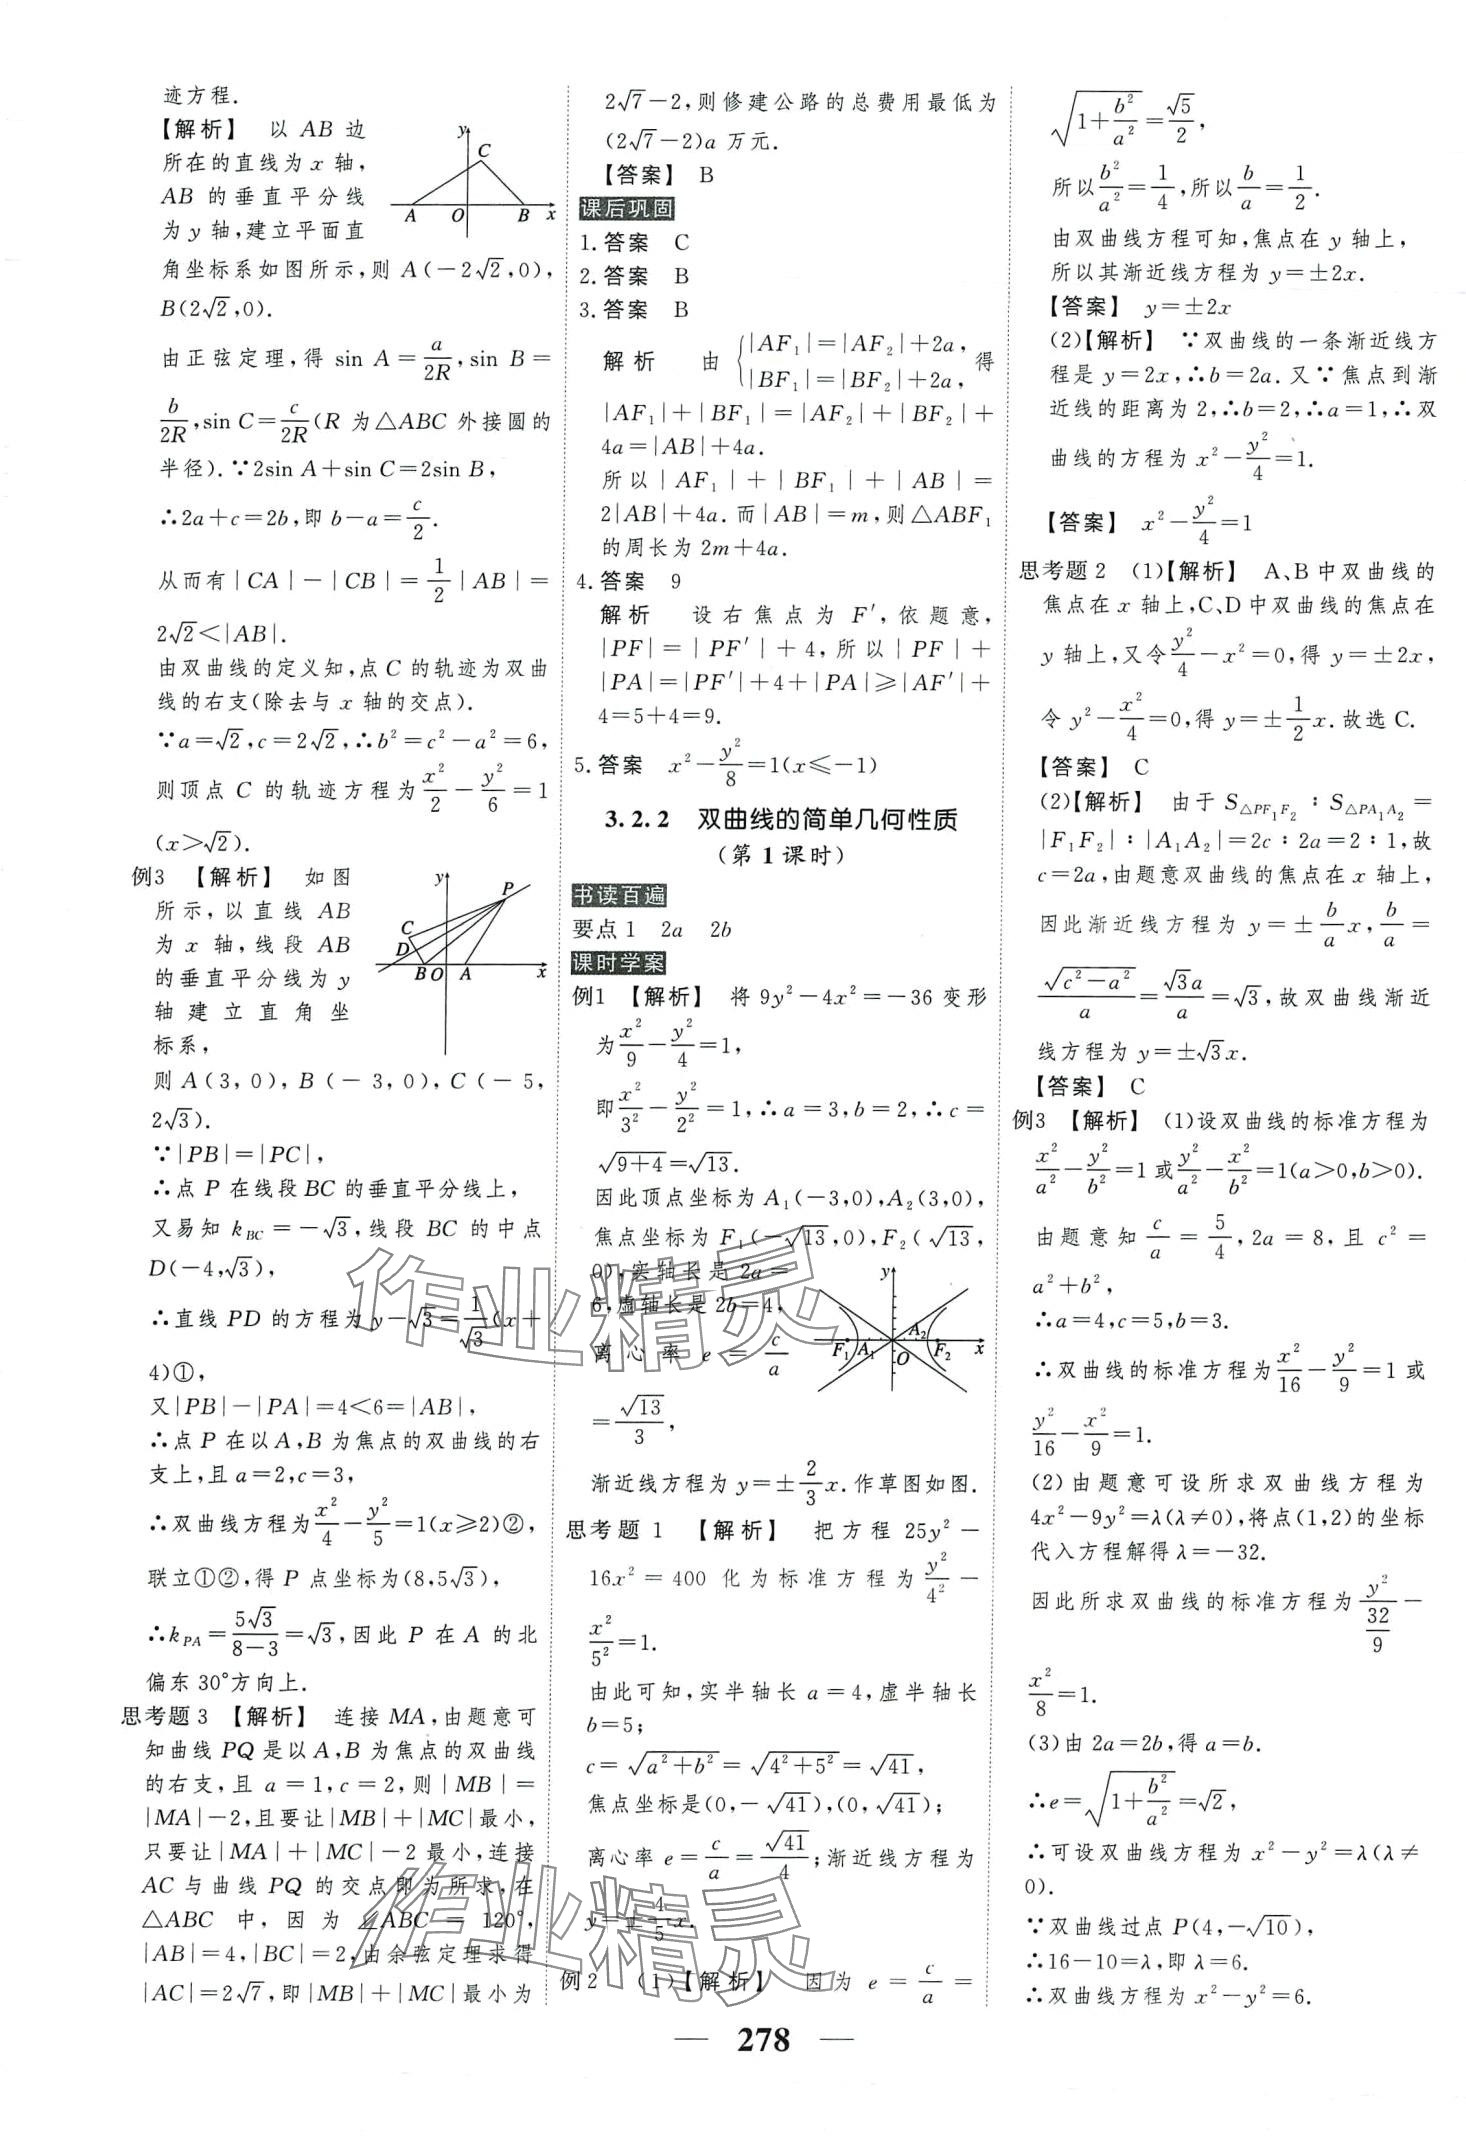 迹方程.
【解析】 以 AB 边
所在的直线为 x 轴,
AB 的垂直平分线
为 y 轴,建立平面直
角坐标系如图所示,则 A(-2√2,0),
B(2√2,0).
由正弦定理,得 sin A=a/2R,sin B=
b/2R,sin C=c/2R(R 为△ABC 外接圆的
半径).∵2sin A+sin C=2sin B,
∴2a+c=2b,即 b-a=c/2.
从而有|CA|-|CB|=1/2|AB|=
2√2<|AB|.
由双曲线的定义知,点 C 的轨迹为双曲
线的右支(除去与 x 轴的交点).
∵a=√2,c=2√2,∴b²=c²-a²=6,
则顶点 C 的轨迹方程为x²/2-y²/6=1
(x>√2).
y
C
A O B x
例3 【解析】 如图
所示,以直线 AB
为 x 轴,线段 AB
的垂直平分线为 y
轴建立直角坐
标系,
则 A(3,0),B(-3,0),C(-5,
2√3).
∵|PB|=|PC|,
∴点 P 在线段 BC 的垂直平分线上,
又易知 k_BC=-√3,线段 BC 的中点
D(-4,√3),
∴直线 PD 的方程为 y-√3=1/√3(x+
4)①,
又|PB|-|PA|=4<6=|AB|,
∴点 P 在以 A,B 为焦点的双曲线的右
支上,且 a=2,c=3,
∴双曲线方程为x²/4-y²/5=1(x≥2)②,
联立①②,得 P 点坐标为(8,5√3),
∴k_PA=5√3/(8-3)=√3,因此 P 在 A 的北
偏东 30°方向上.
y
P
C
D
B O A x
思考题 3 【解析】 连接 MA,由题意可
知曲线 PQ 是以 A,B 为焦点的双曲线
的右支,且 a=1,c=2,则|MB|=
|MA|-2,且要让|MB|+|MC|最小,
只要让|MA|+|MC|-2 最小,连接
AC 与曲线 PQ 的交点即为所求,在
△ABC 中,因为∠ABC=120°,
|AB|=4,|BC|=2,由余弦定理求得
|AC|=2√7,即|MB|+|MC|最小为
2√7-2,则修建公路的总费用最低为
(2√7-2)a 万元.
【答案】 B
课后巩固
1.答案 C
2.答案 B
3.答案 B
解析 由{|AF₁|=|AF₂|+2a, |BF₁|=|BF₂|+2a,得
|AF₁|+|BF₁|=|AF₂|+|BF₂|+
4a=|AB|+4a.
所以|AF₁|+|BF₁|+|AB|=
2|AB|+4a.而|AB|=m,则△ABF₁
的周长为 2m+4a.
4.答案 9
解析 设右焦点为 F′,依题意,
|PF|=|PF′|+4,所以|PF|+
|PA|=|PF′|+4+|PA|≥|AF′|+
4=5+4=9.
5.答案 x²-y²/8=1(x≤-1)
3.2.2 双曲线的简单几何性质
(第 1 课时)
书读百遍
要点 1 2a 2b
课时学案
例1 【解析】 将 9y²-4x²=-36 变形
为x²/9-y²/4=1,
即x²/3²-y²/2²=1,∴a=3,b=2,∴c=
√(9+4)=√13.
因此顶点坐标为 A₁(-3,0),A₂(3,0),
焦点坐标为 F₁(-√13,0),F₂(√13,
0),实轴长是 2a=
6,虚轴长是 2b=4,
离心率 e=c/a
=√13/3,
y
F₁ A₁ O A₂ F₂ x
渐近线方程为 y=±2/3x.作草图如图.
思考题 1 【解析】 把方程 25y²-
16x²=400 化为标准方程为y²/4²-
x²/5²=1.
由此可知,实半轴长 a=4,虚半轴长
b=5;
c=√(a²+b²)=√(4²+5²)=√41,
焦点坐标是(0,-√41),(0,√41);
离心率 e=c/a=√41/4;渐近线方程为
y=±4/5x.
例2 (1)【解析】 因为 e=c/a=
√(1+b²/a²)=√5/2,
所以b²/a²=1/4,所以b/a=1/2.
由双曲线方程可知,焦点在 y 轴上,
所以其渐近线方程为 y=±2x.
【答案】 y=±2x
(2)【解析】 ∵双曲线的一条渐近线方
程是 y=2x,∴b=2a.又∵焦点到渐
近线的距离为 2,∴b=2,∴a=1,∴双
曲线的方程为 x²-y²/4=1.
【答案】 x²-y²/4=1
思考题 2 (1)【解析】 A、B 中双曲线的
焦点在 x 轴上,C、D 中双曲线的焦点在
y 轴上,又令y²/4-x²=0,得 y=±2x,
令 y²-x²/4=0,得 y=±1/2x.故选 C.
【答案】 C
(2)【解析】 由于 S△PF₁F₂∶S△PA₁A₂=
|F₁F₂|∶|A₁A₂|=2c∶2a=2∶1,故
c=2a,由题意双曲线的焦点在 x 轴上,
因此渐近线方程为 y=±b/a x,b/a=
√(c²-a²)/a=√3a/a=√3,故双曲线渐近
线方程为 y=±√3x.
【答案】 C
例3 【解析】 (1)设双曲线的标准方程为
x²/a²-y²/b²=1 或y²/a²-x²/b²=1(a>0,b>0).
由题意知c/a=5/4,2a=8,且 c²=
a²+b²,
∴a=4,c=5,b=3.
∴双曲线的标准方程为x²/16-y²/9=1 或
y²/16-x²/9=1.
(2)由题意可设所求双曲线方程为
4x²-9y²=λ(λ≠0),将点(1,2)的坐标
代入方程解得 λ=-32.
因此所求双曲线的标准方程为y²/(32/9)-
x²/8=1.
(3)由 2a=2b,得 a=b.
∴e=√(1+b²/a²)=√2,
∴可设双曲线方程为 x²-y²=λ(λ≠
0).
∵双曲线过点 P(4,-√10),
∴16-10=λ,即 λ=6.
∴双曲线方程为 x²-y²=6.
作业精灵
作业精灵
— 278 —